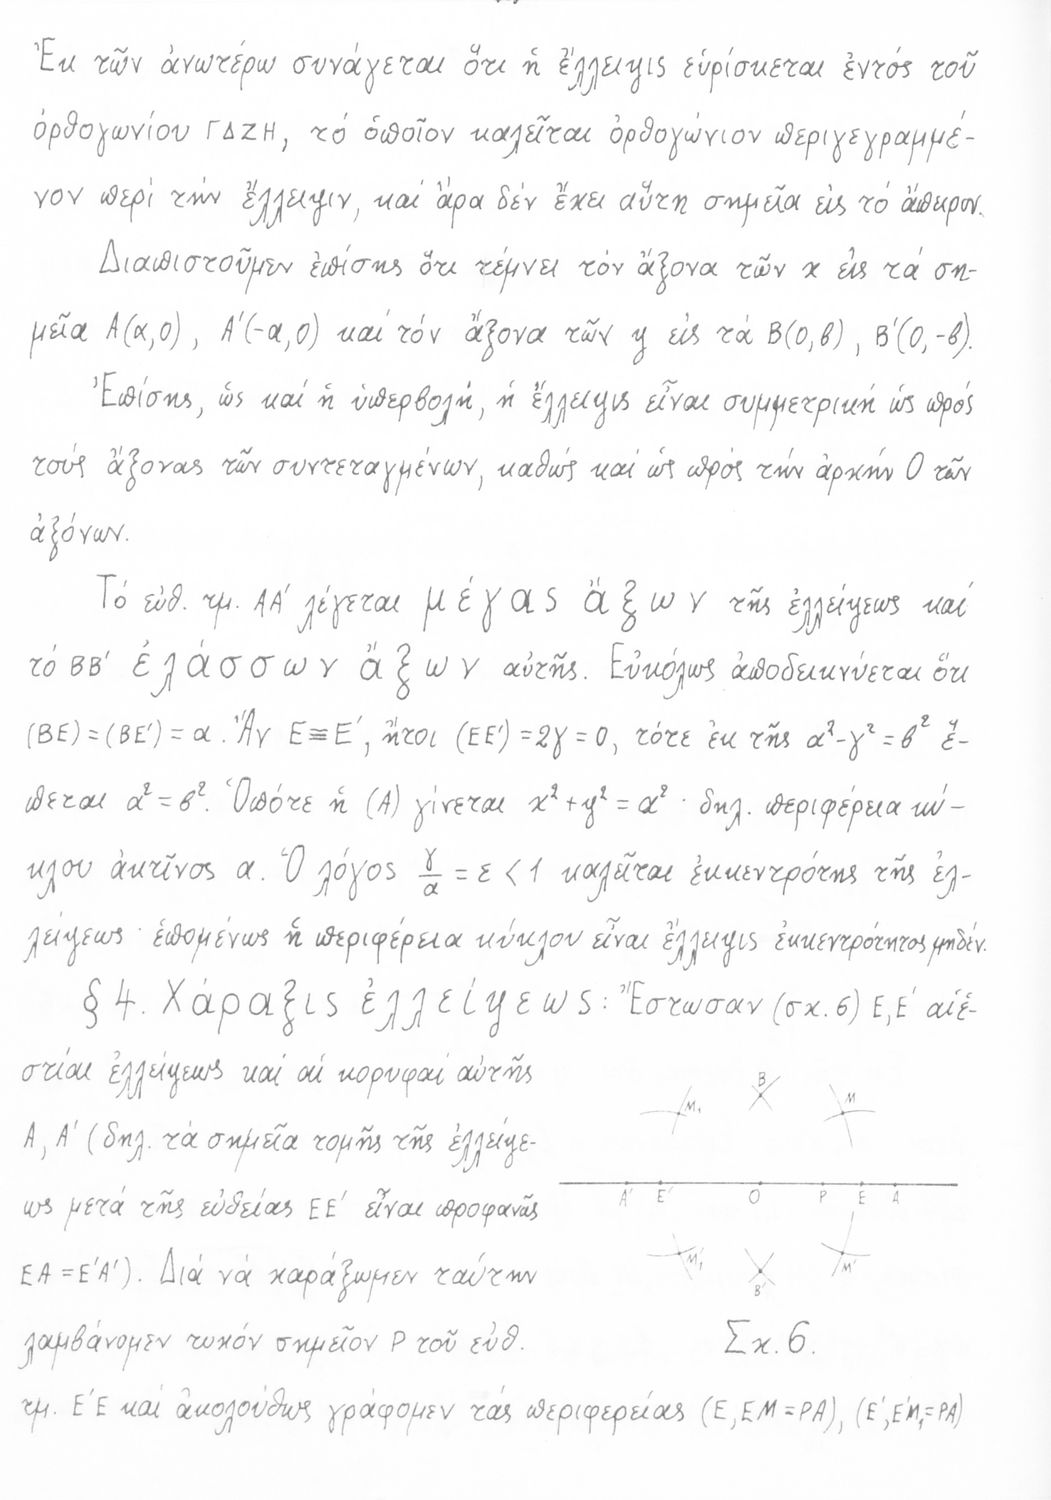 Ἐκ τῶν ἀνωτέρω συνάγεται ὅτι ἡ ἔλλειψις εὑρίσκεται ἐντός τοῦ
ὀρθογωνίου ΓΔΖΗ, τό ὁποῖον καλεῖται ὀρθογώνιον περιγεγραμμέ-
νον περί τήν ἔλλειψιν, καί ἄρα δέν ἔχει αὕτη σημεῖα εἰς τό ἄπειρον.
Διαπιστοῦμεν ἐπίσης ὅτι τέμνει τόν ἄξονα τῶν x εἰς τά ση-
μεῖα Α(α,0), Α′(-α,0) καί τόν ἄξονα τῶν y εἰς τά Β(0,β), Β′(0,-β).
Ἐπίσης, ὡς καί ἡ ὑπερβολή, ἡ ἔλλειψις εἶναι συμμετρική ὡς πρός
τούς ἄξονας τῶν συντεταγμένων, καθώς καί ὡς πρός τήν ἀρχήν Ο τῶν
ἀξόνων.
Τό εὐθ. τμ. ΑΑ′ λέγεται μέγας ἄξων τῆς ἐλλείψεως καί
τό ΒΒ′ ἐλάσσων ἄξων αὐτῆς. Εὐκόλως ἀποδεικνύεται ὅτι
(ΒΕ)=(ΒΕ′)=α. Ἄν Ε≡Ε′, ἤτοι (ΕΕ′)=2γ=0, τότε ἐκ τῆς α²-γ²=β² ἕ-
πεται α²=β². Ὁπότε ἡ (Α) γίνεται x²+y²=α² · δηλ. περιφέρεια κύ-
κλου ἀκτῖνος α. Ὁ λόγος γ/α = ε < 1 καλεῖται ἐκκεντρότης τῆς ἐλ-
λείψεως · ἑπομένως ἡ περιφέρεια κύκλου εἶναι ἔλλειψις ἐκκεντρότητος μηδέν.
§ 4. Χάραξις ἐλλείψεως: Ἔστωσαν (σχ. 6) Ε,Ε′ αἱ ἑ-
στίαι ἐλλείψεως καί αἱ κορυφαί αὐτῆς
Α, Α′ (δηλ. τά σημεῖα τομῆς τῆς ἐλλείψε-
ως μετά τῆς εὐθείας ΕΕ′ εἶναι προφανῶς
ΕΑ=Ε′Α′). Διά νά χαράξωμεν ταύτην
λαμβάνομεν τυχόν σημεῖον Ρ τοῦ εὐθ.
τμ. Ε′Ε καί ἀκολούθως γράφομεν τάς περιφερείας (Ε,ΕΜ=ΡΑ), (Ε′,Ε′Μ₁=ΡΑ)
Μ₁ Β Μ
Α′ Ε′ Ο Ρ Ε Α
Μ₁′ Β′ Μ′
Σχ. 6.